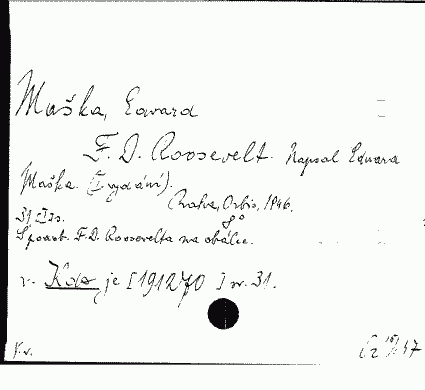 Maška, Edvard
F. D. Roosevelt. Napsal Edvard
Maška. (I. vydání).
Praha, Orbis, 1946.
31 [I]s. 8°
S portr. F. D. Roosevelta na obálce.
v. Kdo je [191270] sv. 31.
K.v.